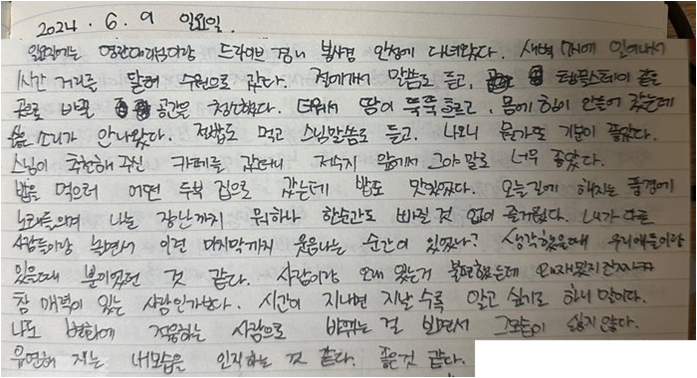 2024. 6. 9 일요일.
일요일에는 드라이브 겸 다녀왔다. 새벽 일어나서
1시간 거리를 달려 수원으로 갔다. 절에가서 말씀도 듣고, 템플스테이 같은
곳으로 바꿀 공간을 청소했다. 더워서 땀이 뚝뚝 흐르고, 몸에 힘이 안들어 갔는데
소리가 안나왔다. 절밥도 먹고 스님말씀도 듣고. 나오니 기분이 좋았다.
스님이 추천해 주신 카페를 갔더니 저수지 앞에서 그야말로 너무 좋았다.
밥을 먹으러 어떤 두부 집으로 갔는데 밥도 맛있었다. 오늘길에 해지는 풍경에
노래들으며 나눈 장난까지 뭐하나 한순간도 빠질 것 없이 즐거웠다. 내가 다른
사람들이랑 놀면서 이런 마지막까지 웃음나는 순간이 있었나? 생각했을때 우리애들이랑
있을때 뿐이었던 것 같다. 사람이랑 오래 있는거 불편했는데
참 매력이 있는 사람인가보다. 시간이 지나면 지날 수록 알고 싶기도 하니 말이다.
나도 변화에 적응하는 사람으로 바뀌는 걸 보면서 그모습이 싫지 않다.
유연해 지는 내모습을 인지하는 것 같다. 좋은것 같다.